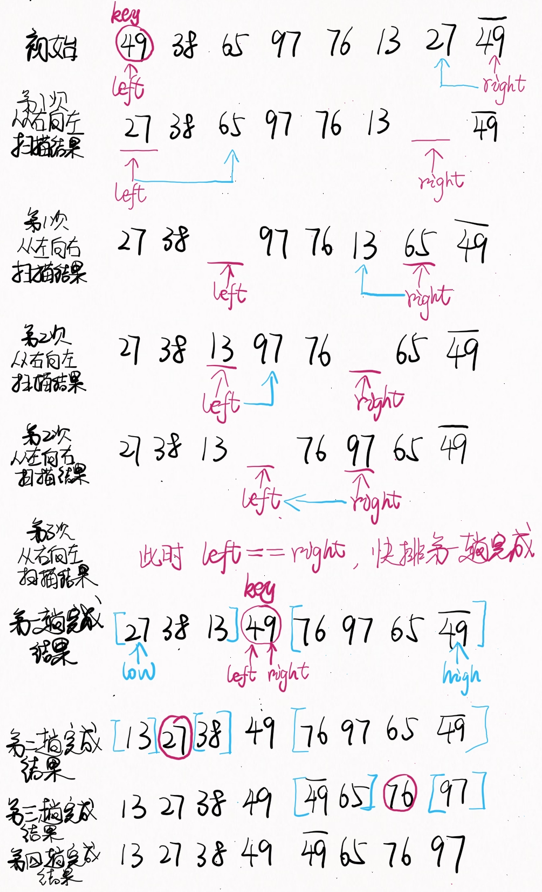 key
初始 49 38 65 97 76 13 27 4̅9̅
left right
第1次
从右向左
扫描结果
27 38 65 97 76 13 4̅9̅
left right
第1次
从左向右
扫描结果
27 38 97 76 13 65 4̅9̅
left right
第2次
从右向左
扫描结果
27 38 13 97 76 65 4̅9̅
left right
第2次
从左向右
扫描结果
27 38 13 76 97 65 4̅9̅
left right
第3次
从右向左
扫描结果
此时 left == right, 快排第一趟完成
key
第一趟完成
结果
[27 38 13] 49 [76 97 65 4̅9̅]
low left right high
第二趟完成
结果
[13] 27 [38] 49 [76 97 65 4̅9̅]
第三趟完成
结果
13 27 38 49 [4̅9̅ 65] 76 [97]
第四趟完成
结果
13 27 38 49 4̅9̅ 65 76 97